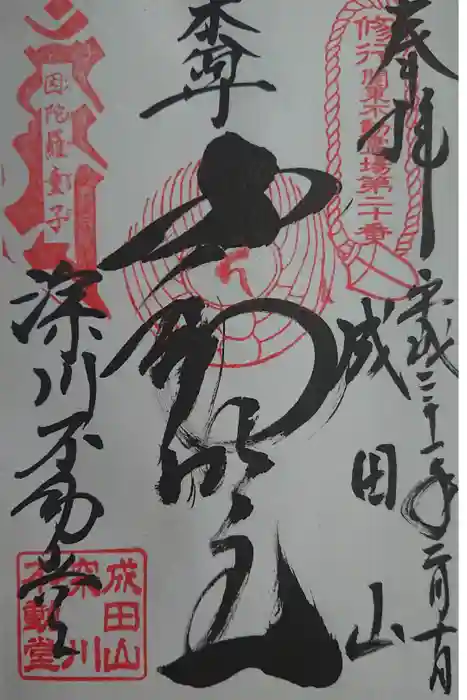 奉拝
平成三十一年二月十日
修行
関東不動霊場第二十番
成田山
本尊
不動明王
因陀羅童子
深川不動堂
成田山
深川
不動堂